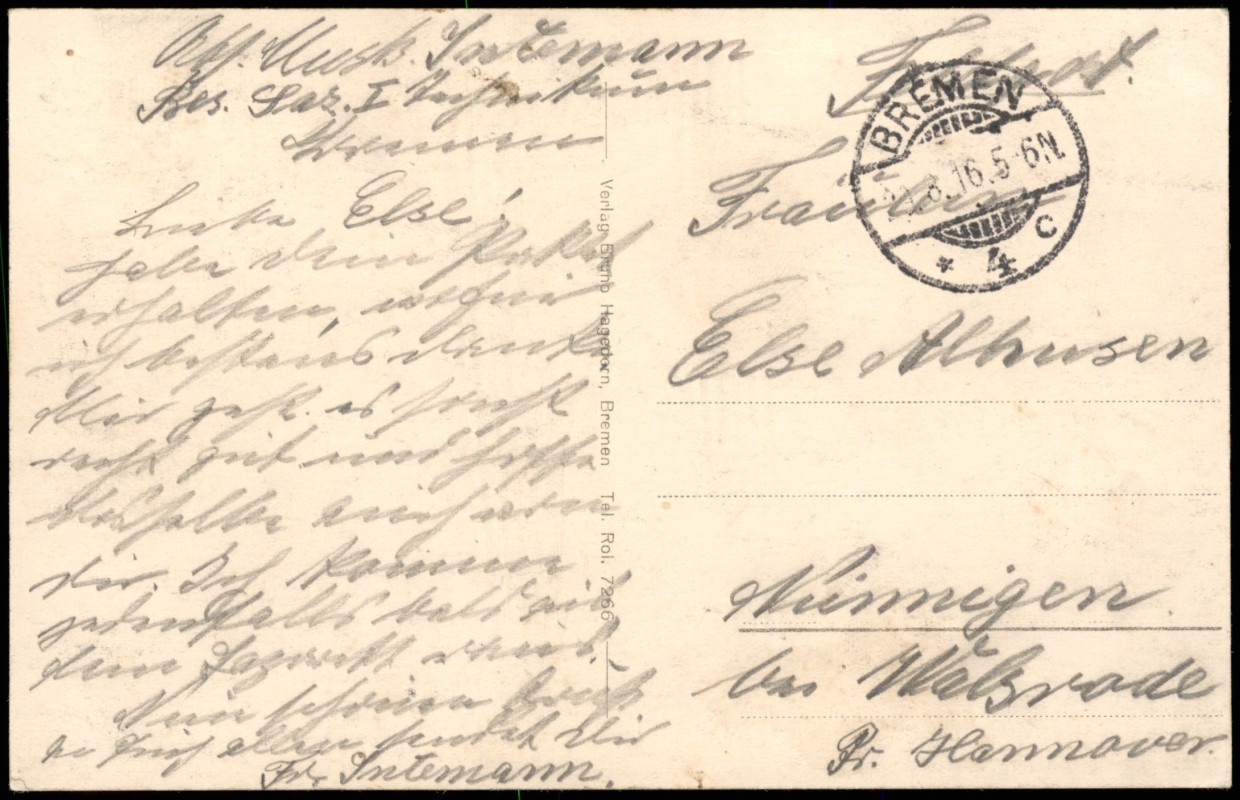 Abs. Musk. Intemann
Res. Laz. I Technikum
Bremen
Liebe Else!
Habe dein Paket
erhalten, wofür
ich bestens danke
Mir geht es sonst
recht gut und hoffe
dasselbe auch von
dir. Ich komme
jedenfalls bald aus
dem Lazarett raus.
Nun schönen Gruß
an Euch allen sendet Dir
Fr. Intemann.
Verlag Bruno Hagedorn, Bremen Tel. Rol. 7266
BREMEN
8.16.5-6N.
* 4 c
Fräulein
Else Alhusen
Nünnigen
bei Walsrode
Pr. Hannover.